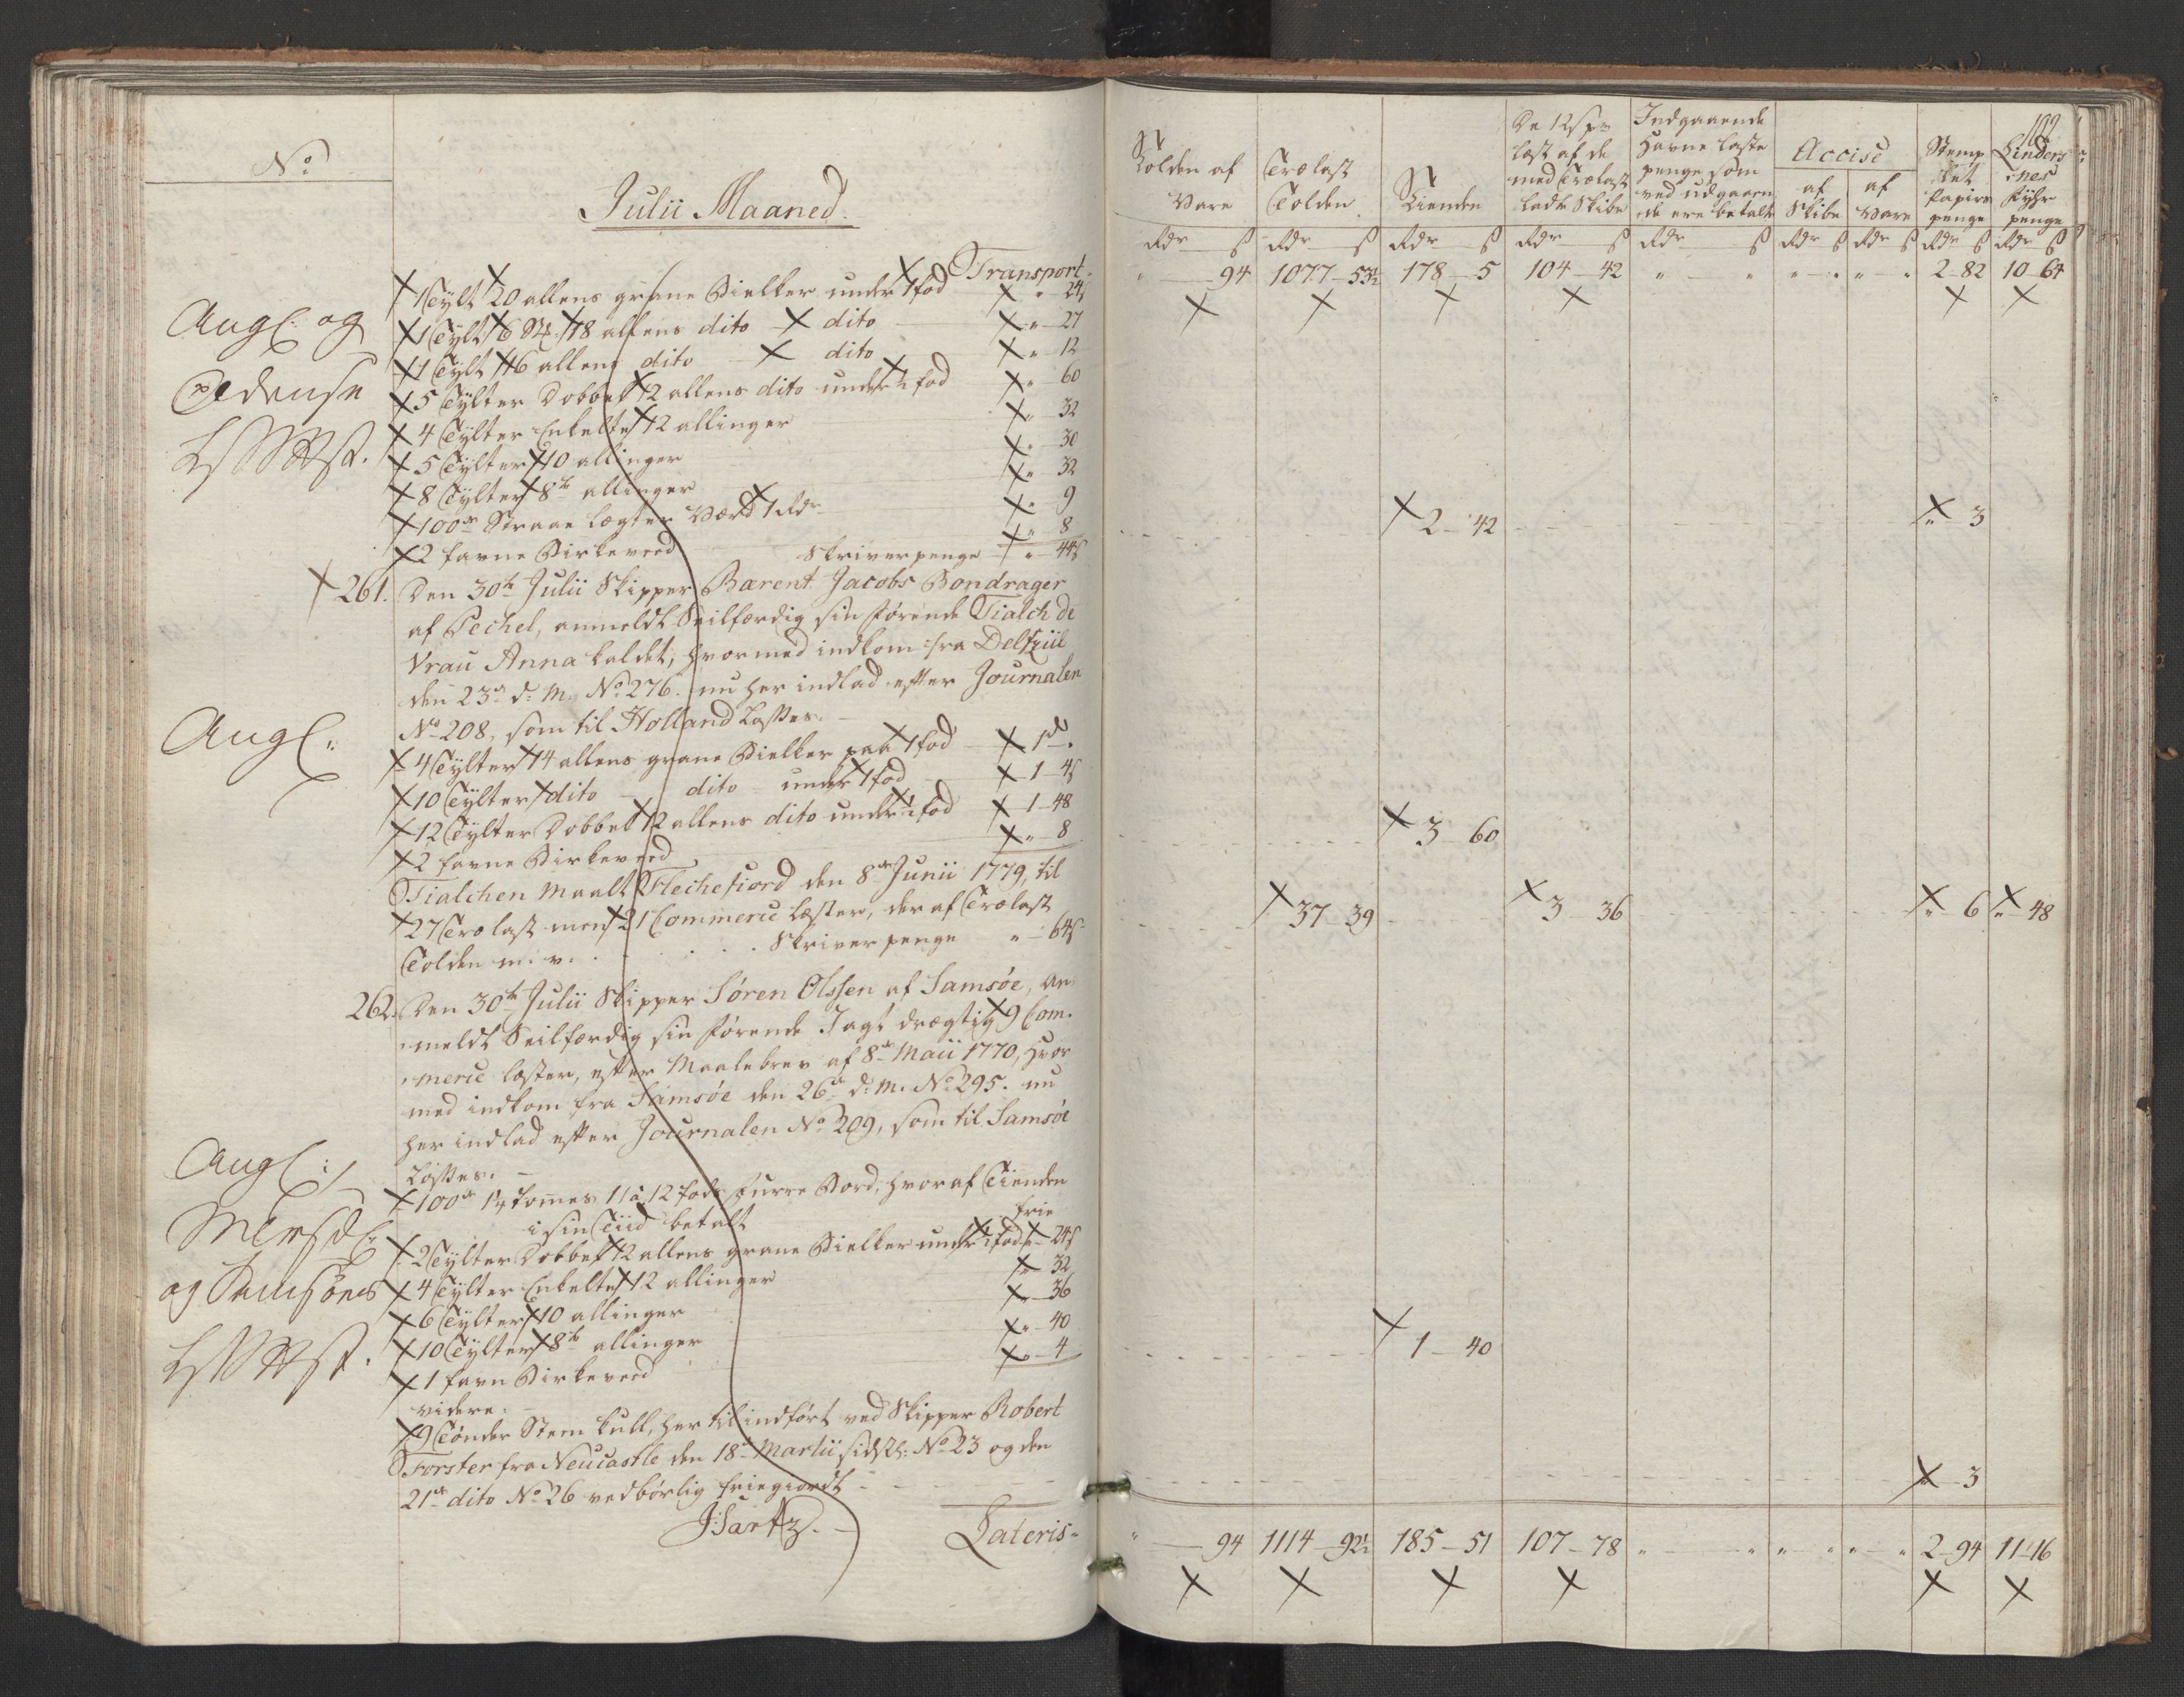 No
Julii Maaned.
Transport
1 Tylt 20 allens grane Bielker under 1 fod " 24 s
Angl: og
1 Tylt 6 St. 18 allens dito dito " 27
1 Tylt 16 allens dito dito " 12
Odense
5 Tylter Dobbelt 12 allens dito under 1/2 fod " 60
4 Tylter Enkelte 12 allinger " 32
5 Tylter 10 allinger " 30
8 Tylter 8te allinger " 32
100de Straae lægter Værd 1 Rdr " 9
2 favne Birkeveed " 8
Skriverpenge " 44 s
261. Den 30te Julii Skipper Barent Jacobs Bondrager
af Pechel, anmeldt Seilfærdig sin førende Tialch de
Vrau Anna kaldet, hvormed indkom fra Delfziil
den 23de d: M: No 276. nu her indlad efter Journalen
No 208, som til Holland Losses.
Angl:
4 Tylter 14 allens grane Bielker paa 1 fod 1 d
10 Tylter dito dito under 1 fod 1 - 4 s
12 Tylter Dobbelt 12 allens dito under 1/2 fod 1 - 48
2 favne Birkeveed " 8
Tialchen Maalt Flechefiord den 8de Junii 1779, til
27 Trælast men 21 Commerce læster, der af Trælast
Tolden m. v. . . . . Skriver penge " 64 s
262. Den 30te Julii Skipper Søren Olssen af Samsøe, an-
meldt Seilfærdig sin førende Jagt drægtig 9 Com-
merce læster, efter Maalebrev af 8de Maii 1770, hvor
med indkom fra Samsøe den 26de d: M: No 295. nu
her indlad efter Journalen No 209, som til Samsøe
Losses.
Angl:
100de 1 1/4 tommes 11 à 12 fods furre Bord, hvoraf Tienden
i sin Tiid betalt frie
2 Tylter Dobbelt 12 allens grane Bielker under 1/2 fod " 24 s
4 Tylter Enkelte 12 allinger " 32
og Samsøes
6 Tylter 10 allinger " 36
10 Tylter 8te allinger " 40
1 favn Birkeveed " 4
videre.
9 Tønder Steen kull, her til indført ved Skipper Robert
Forster fra Neucastle den 18de Martii sidstl: No 23 og den
21de dito No 26 vedbørlig friegiordt
Lateris
102
Tolden af Vare
Trælast Tolden
Tienden
De 12 s pr læst af de med Trælast ladte Skibe
Indgaaende Havne laste penge som ved udgaaende ere betalt
Accise
af Skibe
af Vare
Stemplet Papiirs penge
Linders nes Fyhr penge
Rdr s Rdr s Rdr s Rdr s Rdr s Rdr s Rdr s Rdr s Rdr s
" 94 1077 - 53 1/2 178 - 5 104 - 42 " " " " " " 2 - 82 10 - 64
2 - 42 " 3
3 - 60
37 - 39 3 - 36 " 6 " 48
1 - 40
" 3
" 94 1114 - 92 1/2 185 - 51 107 - 78 " " " " " " 2 - 94 11 - 16